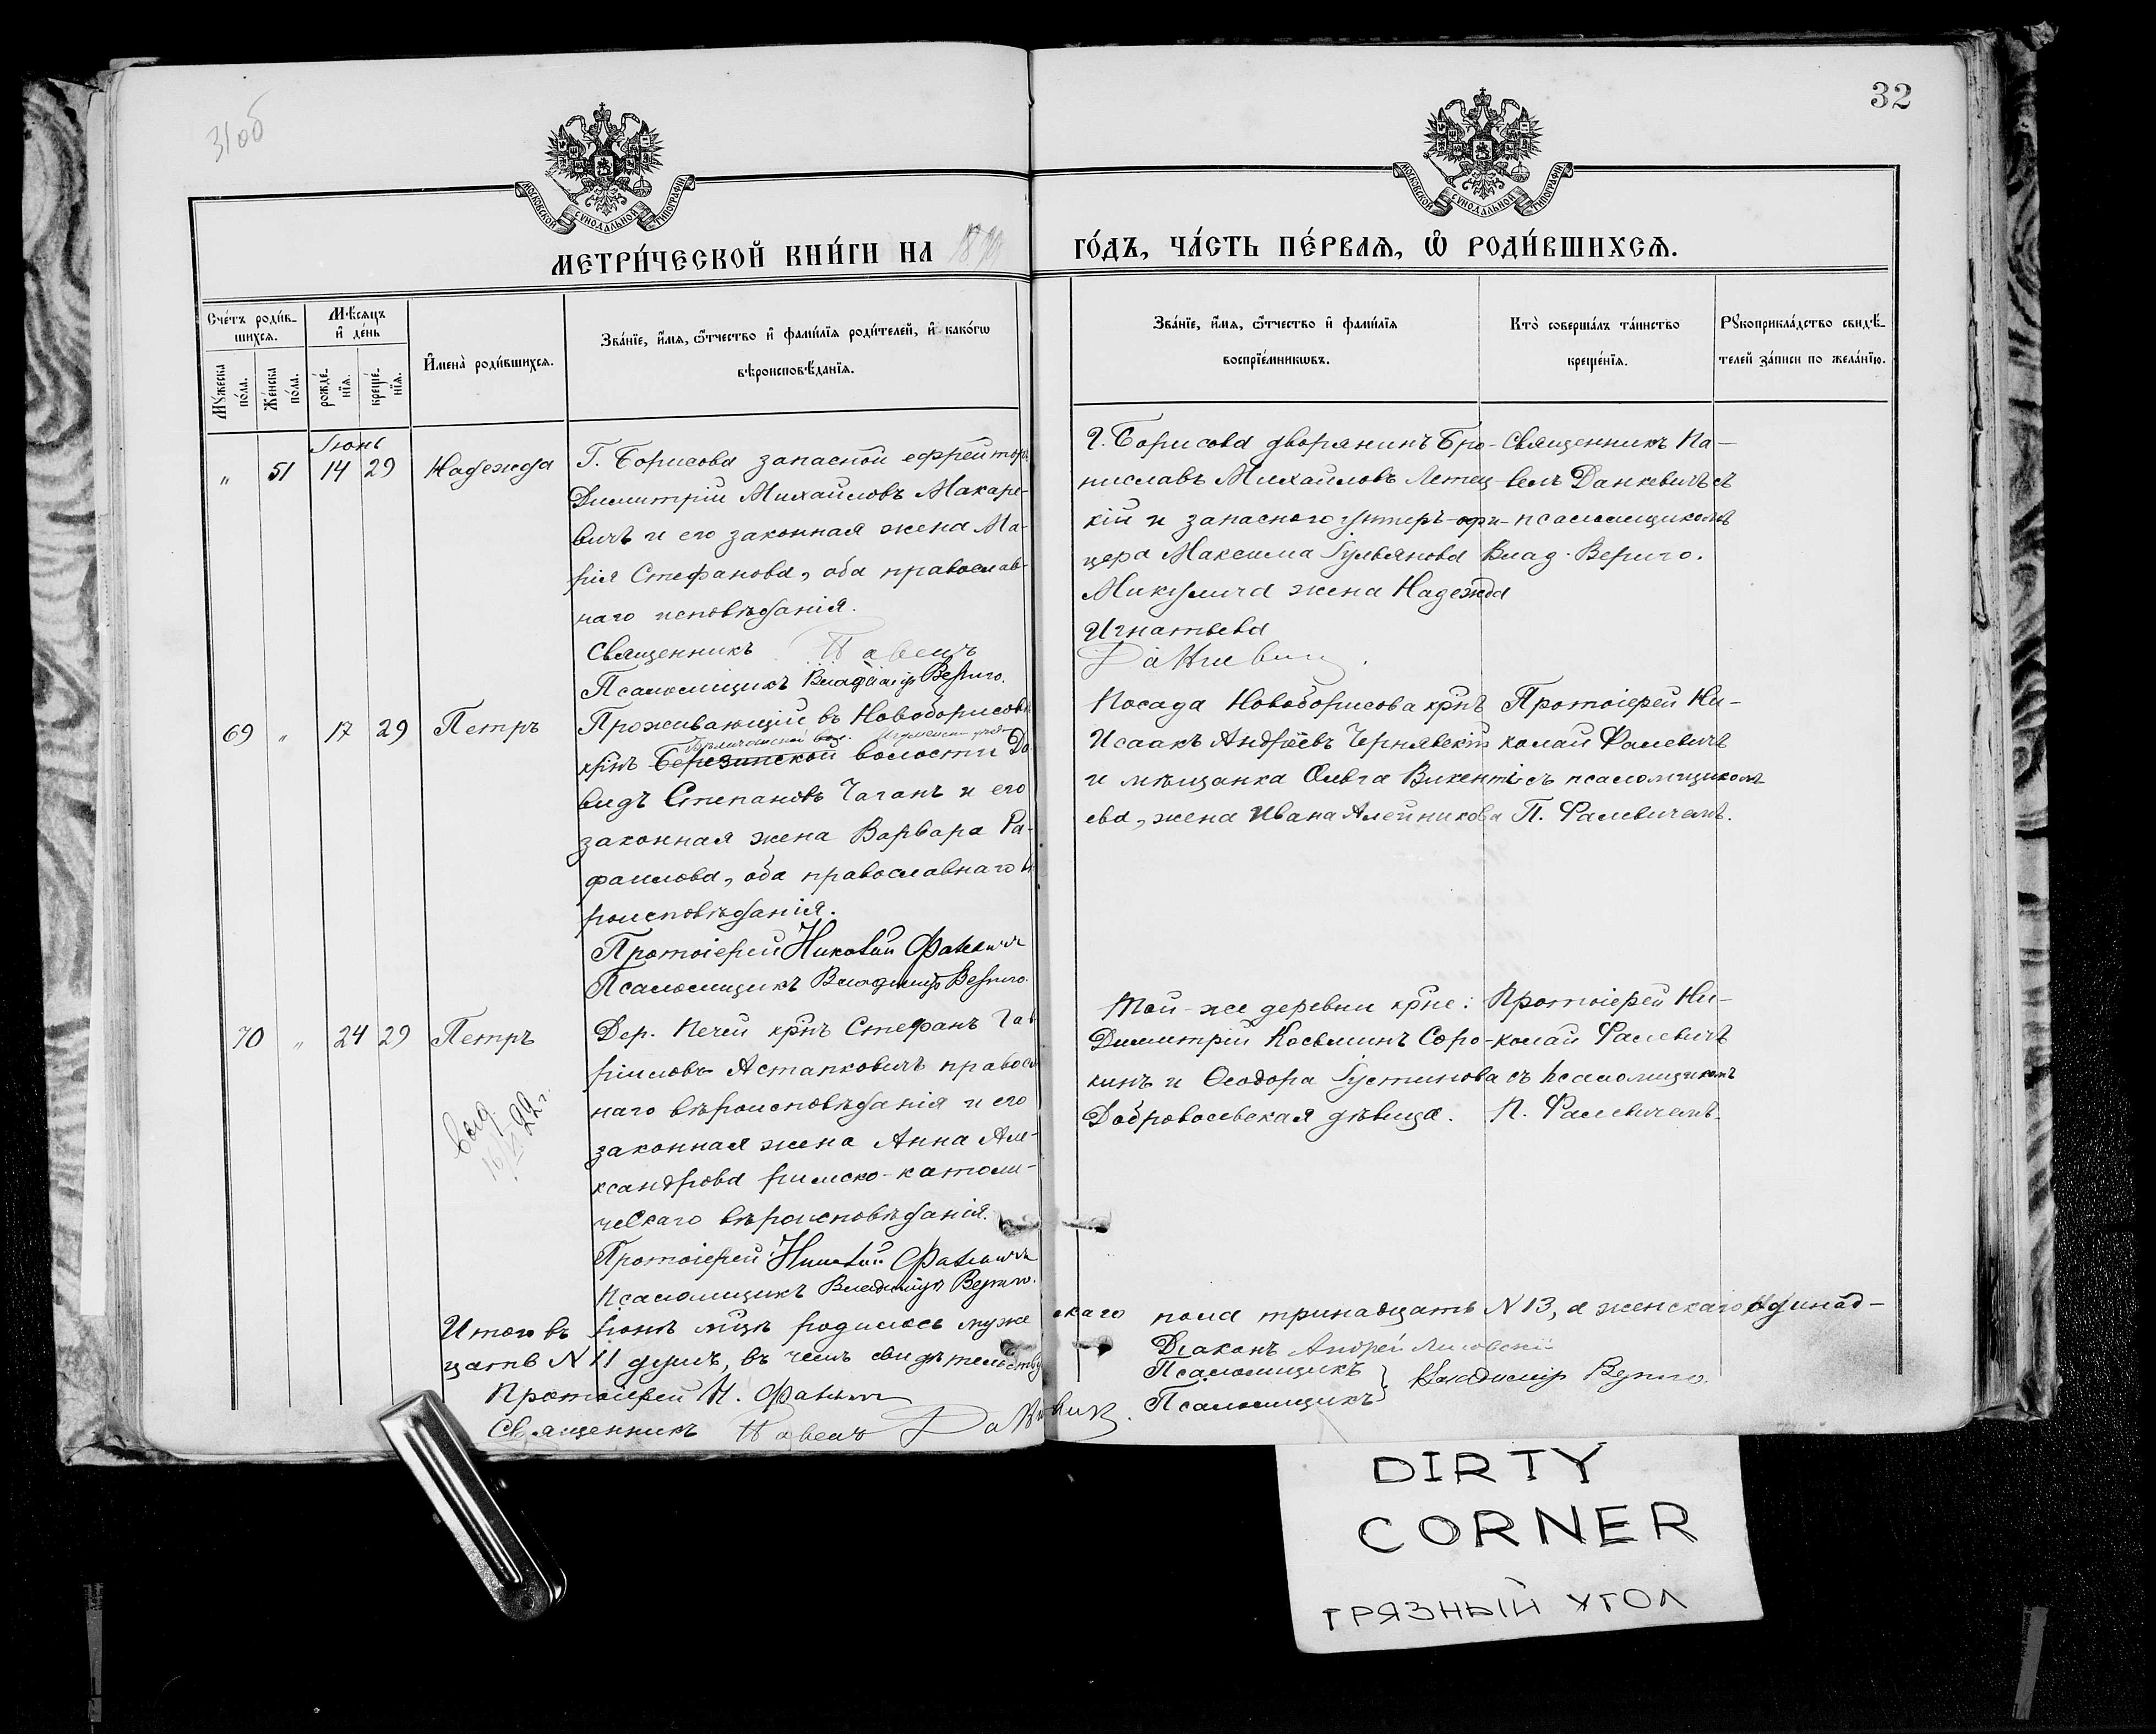 31об
32
МОСКОВСКОЙ СУНОДАЛЬНОЙ ТИПОГРАФІИ
МОСКОВСКОЙ СУНОДАЛЬНОЙ ТИПОГРАФІИ
МЕТРИ́ЧЕСКОЙ КНИ́ГИ НА
ГО́ДЪ, ЧА́СТЬ ПЕ́РВАѦ, Ѡ РОДИ́ВШИХСѦ.
Сче́тъ роди́в-
шихсѧ.
Мѣ́сѧцъ
и҆ де́нь
Мꙋ́жеска
по́ла.
Же́нска
по́ла.
рожде́-
нїѧ.
креще́-
нїѧ.
И҆мена̀ роди́вшихсѧ.
Зва́нїе, и҆́мѧ, ѻ҆́тчество и҆ фами́лїѧ роди́телей, и҆ како́гѡ
вѣроисповѣ́данїѧ.
Зва́нїе, и҆́мѧ, ѻ҆́тчество и҆ фами́лїѧ
воспрїе́мникѡвъ.
Кто̀ соверша́лъ та́инство
креще́нїѧ.
Рꙋкоприкла́дство свидѣ́-
телей за́писи по жела́нїю.
Іюнь
" 51 14 29 Надежда
Г. Борисова запасной ефрейторъ
Димитрій Михайловъ Макаре-
вичъ и его законная жена Ма-
рія Стефанова, оба православ-
наго исповѣданія.
Священникъ Павелъ
Псаломщикъ Владиміръ Вериго.
Г. Борисова дворянинъ Бро-
ниславъ Михайловъ Летец-
кій и запасного унтеръ-офи-
цера Максима Іульянова
Микулича жена Надежда
Игнатьева
Данкевичъ.
Священникъ Па-
велъ Данкевичъ съ
псаломщикомъ
Влад. Вериго.
69 " 17 29 Петръ
Проживающій въ Новоборисовѣ
крнъ Березинской волости Да
видъ Степановъ Чаганъ и его
законная жена Варвара Ра-
фаилова, оба православнаго вѣ
роисповѣданія.
Протоіерей Николай Фалевичъ
Псаломщикъ Владиміръ Вериго.
Посада Новоборисова крнъ
Исаакъ Андреевъ Чернявскій
и мѣщанка Ольга Викенті
ева, жена Ивана Алейникова
Протоіерей Ни-
колай Фалевичъ
съ псаломщикомъ
П. Фалевичемъ.
70 " 24 29 Петръ
выд.
22г.
Дер. Печей крнъ Стефанъ Гав
ріиловъ Астапковичъ правосл
наго вѣроисповѣданія и его
законная жена Анна Але-
ксандрова римско-католи-
ческаго вѣроисповѣданія.
Протоіерей Николай Фалевичъ
Псаломщикъ Владиміръ Вериго.
Той-же деревни крне:
Димитрій Косьминъ Соро-
кинъ и Ѳеодора Іустинова
Добровольская дѣвица.
Протоіерей Ни-
колай Фалевичъ
съ псаломщикомъ
П. Фалевичемъ.
Итого въ іюнѣ мцѣ родилось муже скаго пола тринадцать №13, а женскаго одинад-
цать №11 душъ, въ чемъ свидѣтельству
Протоіерей Н. Фалевичъ
Священникъ Павелъ Данкевичъ.
Діаконъ Андрей Лисовскій
Псаломщикъ } Владиміръ Вериго.
Псаломщикъ
DIRTY
CORNER
ГРЯЗНЫЙ УГОЛ